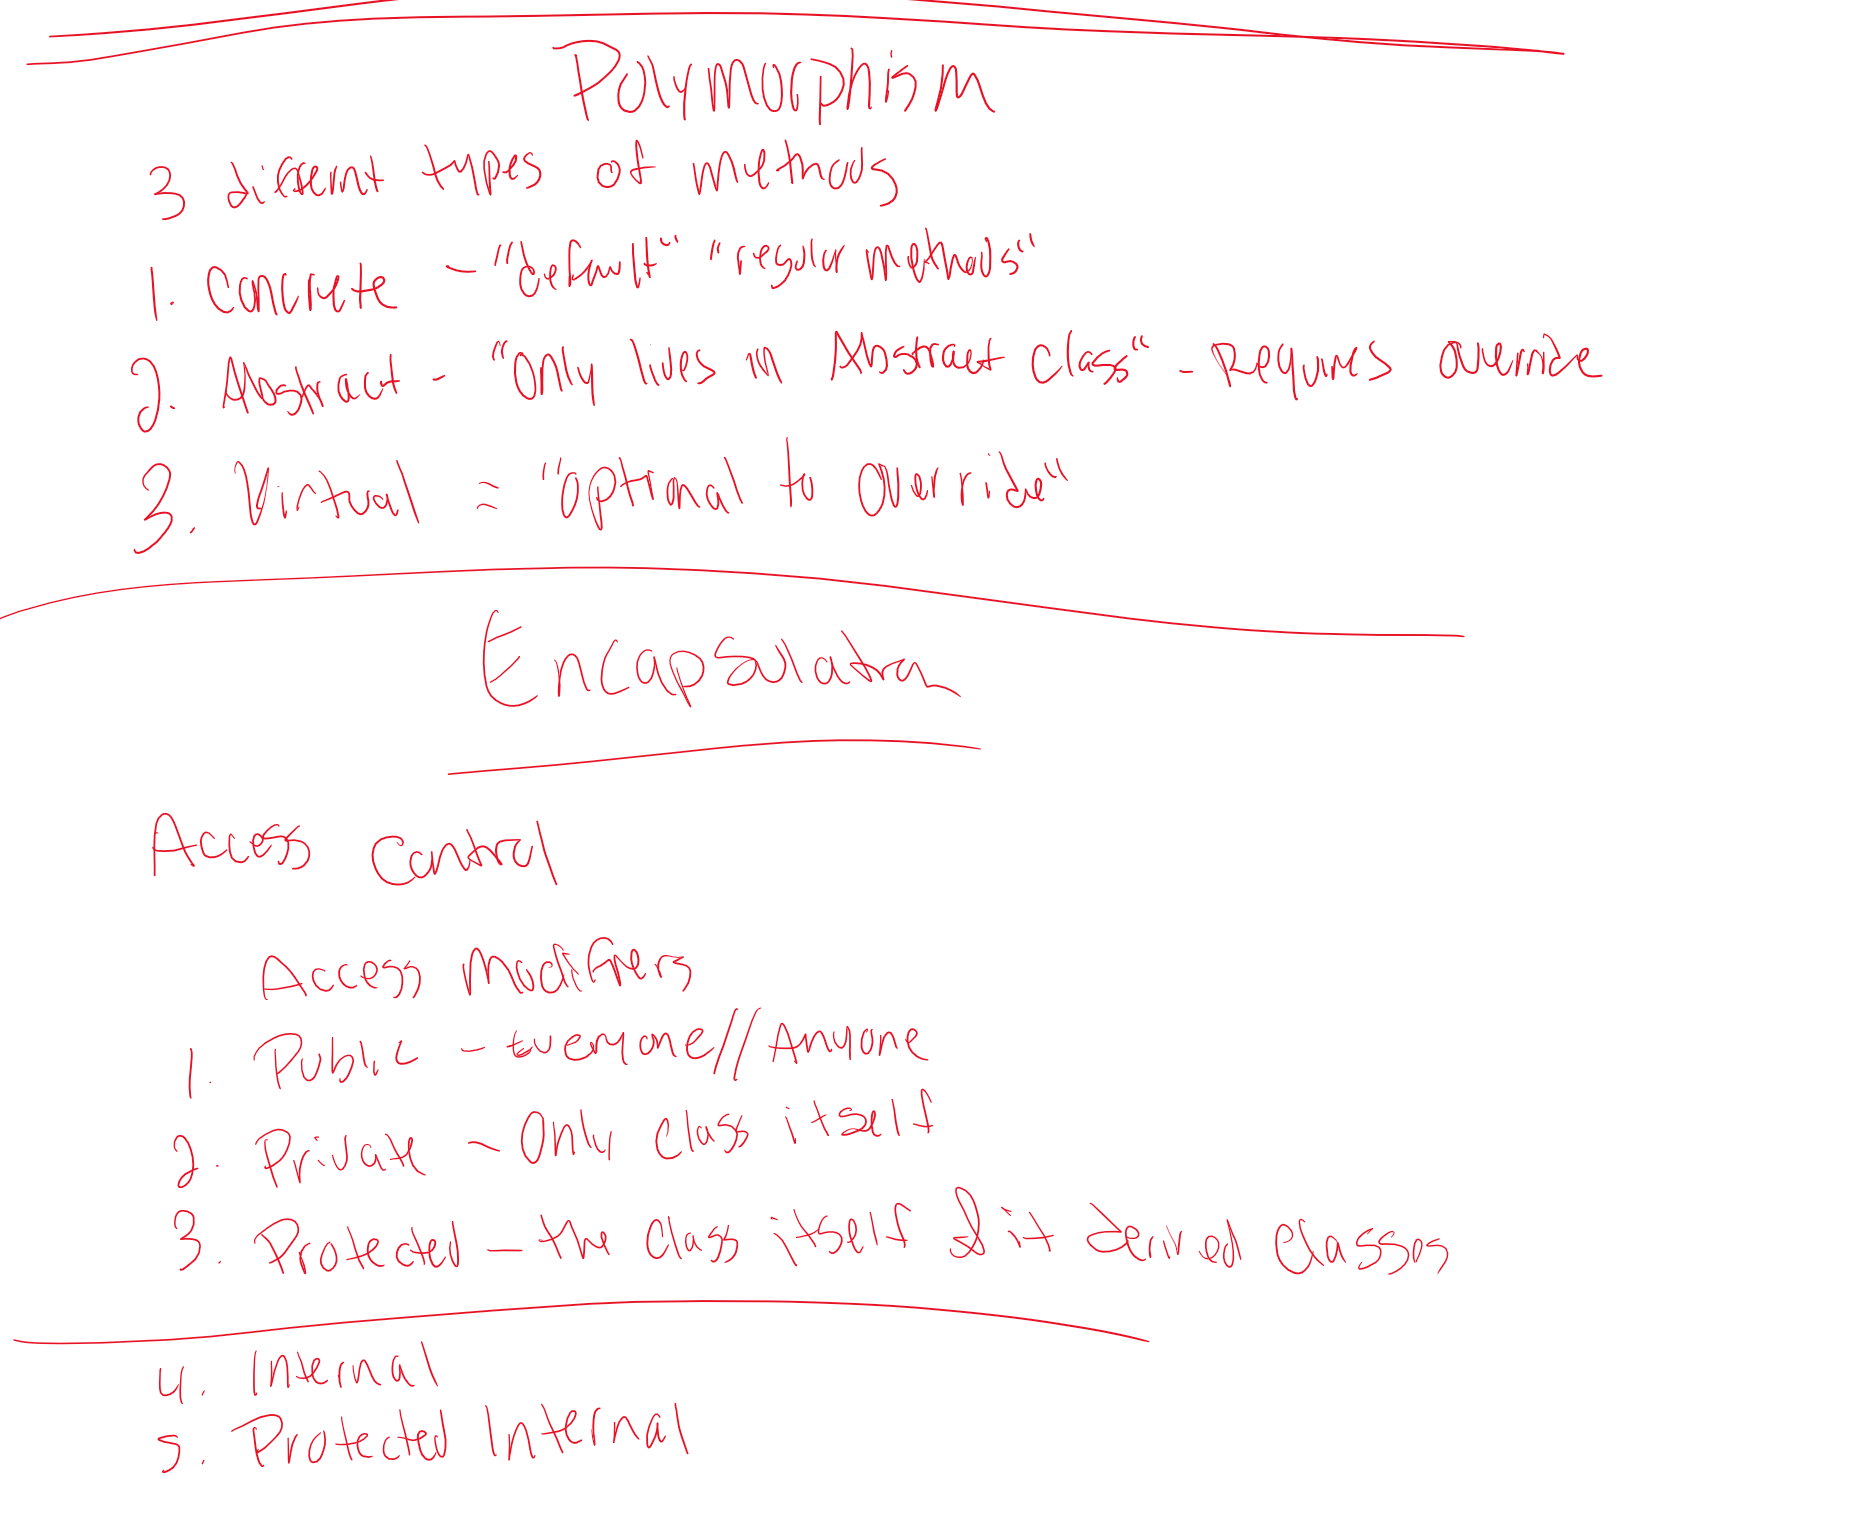 Polymorphism
3 different types of methods
1. Concrete - "default" "regular methods"
2. Abstract - "Only lives in Abstract Class" - Requires override
3. Virtual = "Optional to override"
Encapsulation
Access Control
Access Modifiers
1. Public - Everyone // Anyone
2. Private - Only class itself
3. Protected - the class itself & it derived classes
4. Internal
5. Protected Internal